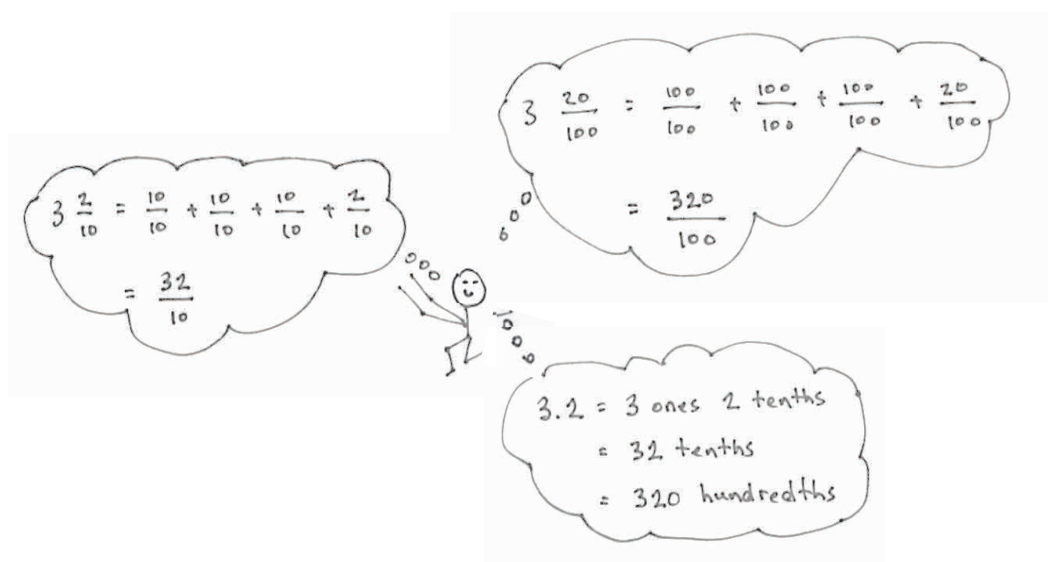 3 2/10 = 10/10 + 10/10 + 10/10 + 2/10
= 32/10
3 20/100 = 100/100 + 100/100 + 100/100 + 20/100
= 320/100
3.2 = 3 ones 2 tenths
= 32 tenths
= 320 hundredths